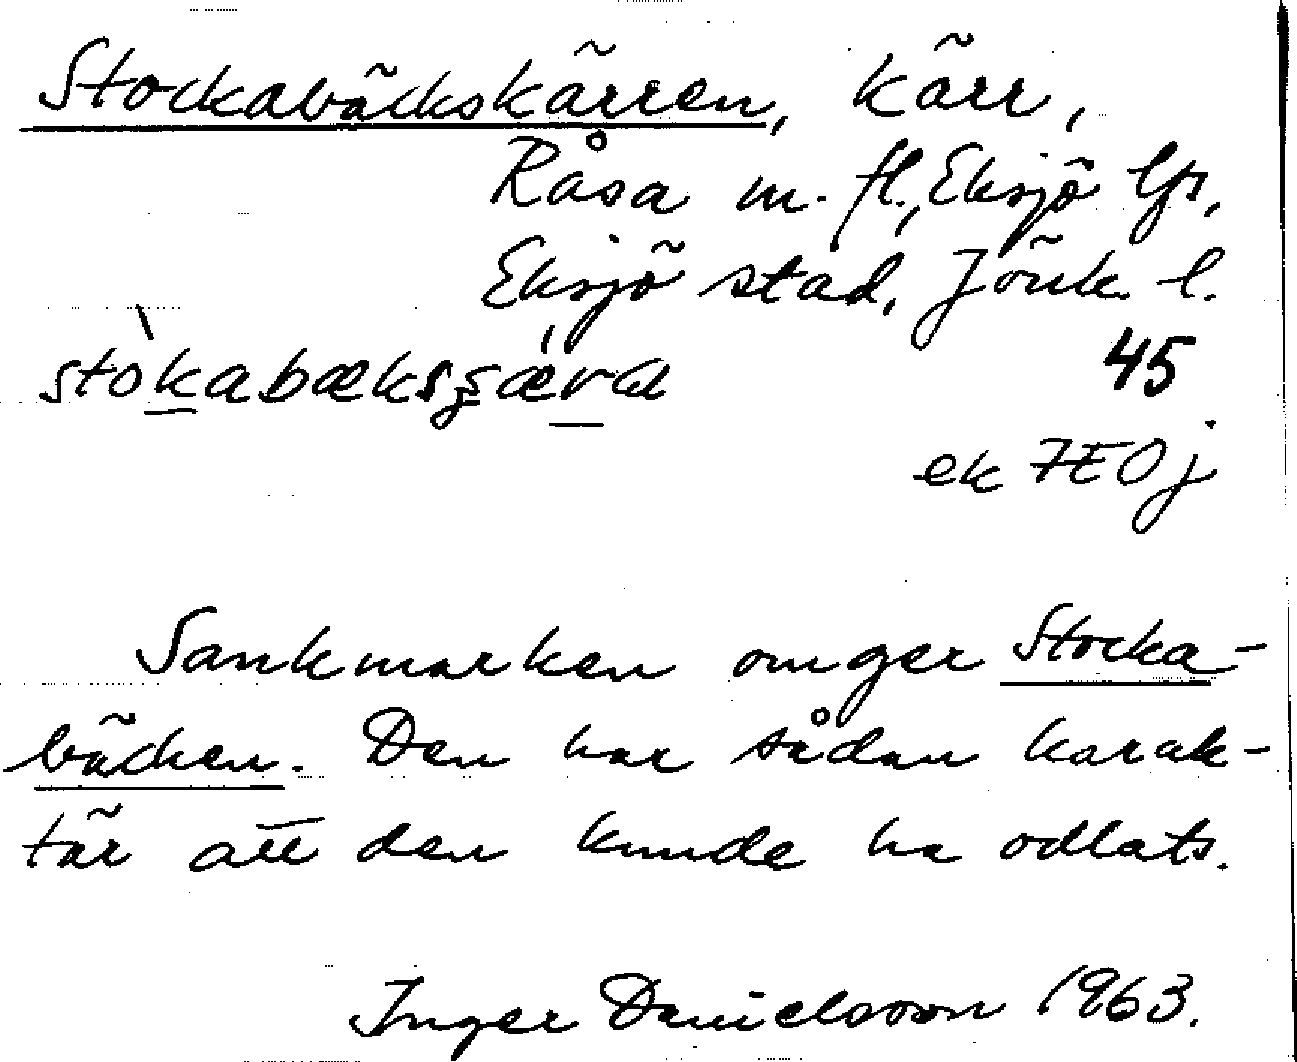 Stockabäckskärren, kärr,
Råsa m. fl., Eksjö lfs,
Eksjö stad, Jönk. l.
45
ek 7E0j
Sankmarken omger Stocka-
bäcken. Den har sådan karak-
tär att den kunde ha odlats.
Inger Danielsson 1963.